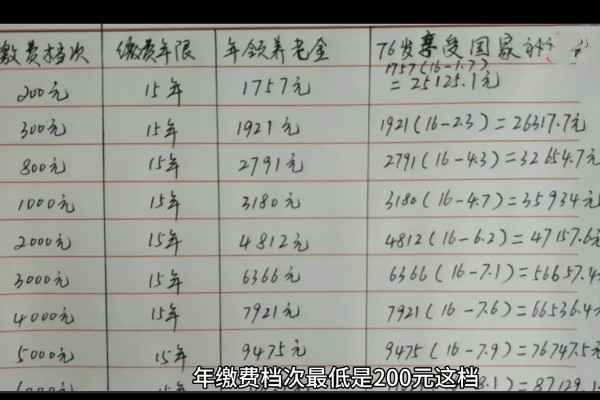 缴费档次 缴费年限 年领养老金 76岁享受国家补
200元 15年 1757元 1757(16-1.7)
=25125.1元
300元 15年 1921元 1921(16-2.3)=26317.7元
800元 15年 2791元 2791(16-4.3)=32654.7元
1000元 15年 3180元 3180(16-4.7)=35934元
2000元 15年 4812元 4812(16-6.2)=47157.6元
3000元 15年 6366元 6366(16-7.1)=56657.4
4000元 15年 7921元 7921(16-7.6)=66536.4
5000元 15年 9475元 9475(16-7.9)=76747.5元
8.1)=87129.1
年缴费档次最低是200元这档